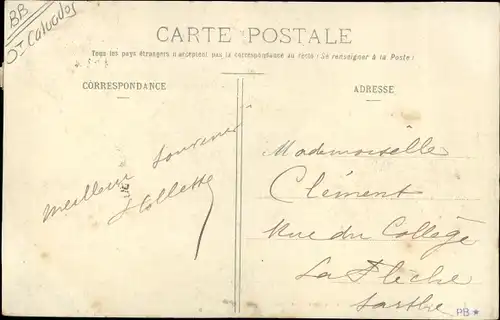 BB
Dt Calvados
CARTE POSTALE
Tous les pays étrangers n'acceptent pas la correspondance au recto (Se renseigner à la Poste)
CORRESPONDANCE
Meilleur Souvenir
Collette
ADRESSE
Mademoiselle
Clément
Rue du Collège
La Flèche
Sarthe
PB ★